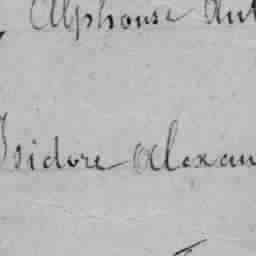 Alphonse Ant
Isidore Alexan